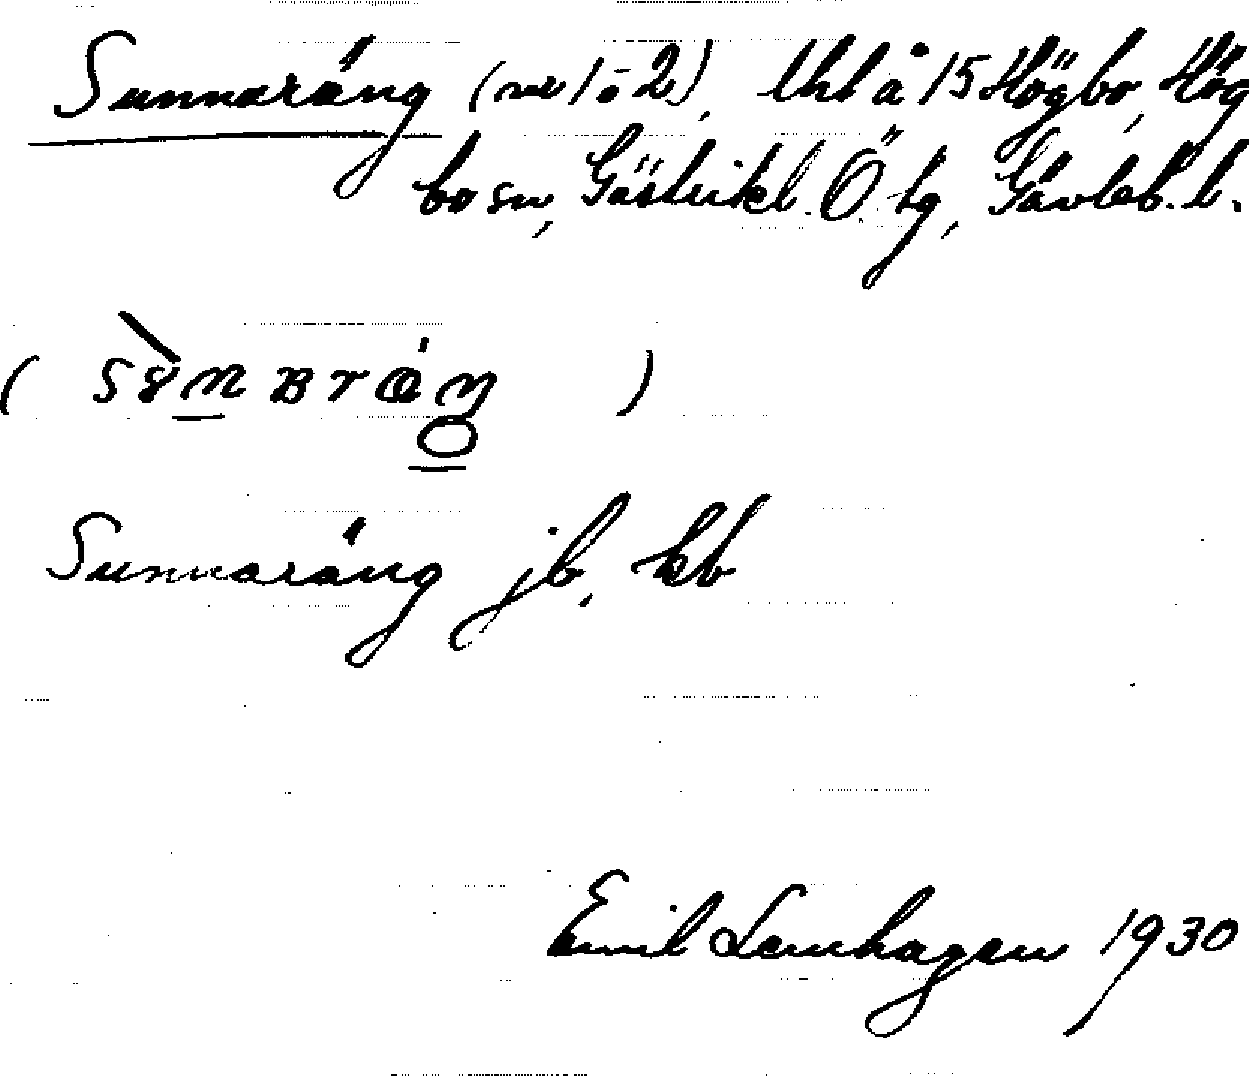 Sunnaräng (nr 1 o 2), lht å 15 Högbo, Hög
bo sn, Gästrikl. Ö. tg, Gävleb. l.
Sunnaräng jb, kb
Emil Lennhagen 1930